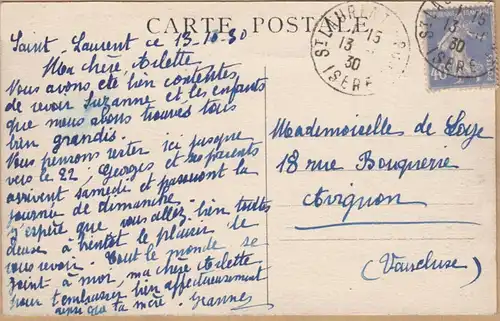 CARTE POSTALE
Saint-Laurent ce 13-10-30
Ma chère Arlette
Vous avons été bien contentes
de revoir Suzanne et les enfants
que nous avons trouvés tous
bien grandis.
Nous pensons rester ici jusque
vers le 22, Georges et ses parents
arrivent samedi et passeront la
journée de dimanche.
J'espère que vous allez bien toutes
deux à bientôt le plaisir de
vous revoir. Tout le monde se
joint à moi, ma chère Arlette
pour t'embrasser bien affectueusement
ainsi que ta mère. Grannes
ST LAURENT
15
13
30
ISERE
ST LAU
15
13
30
ISERE
40
Mademoiselle de Loye
18 rue Bouquerie
Avignon
(Vaucluse)